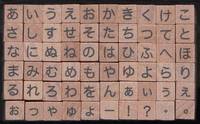 あいうえおかきくけこ
さしすせそたちつてと
なにぬねのはひふへほ
まみむめもやゆよらり
るれろわをんぁぃぅぇ
ぉっゃゅょー!?。